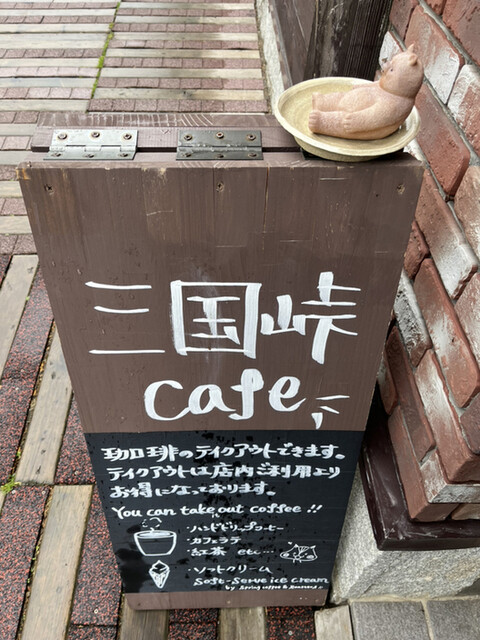 三国峠
cafe
珈琲のテイクアウトできます。
テイクアウトは店内ご利用より
お得になっております。
You can take out coffee!!
・ハンドドリップコーヒー
・カフェラテ
・紅茶 etc...
・ソフトクリーム
Soft-Serve ice cream
by Spring coffee &